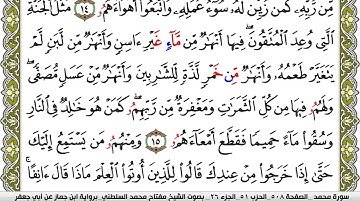 مِّن رَّبِّهِۦ كَمَن زُيِّنَ لَهُۥ سُوٓءُ عَمَلِهِۦ وَٱتَّبَعُوٓا۟ أَهْوَآءَهُمُۥ ١٤ مَّثَلُ ٱلْجَنَّةِ
ٱلَّتِى وُعِدَ ٱلْمُتَّقُونَ فِيهَآ أَنْهَٰرٌ مِّن مَّآءٍ غَيْرِ ءَاسِنٍ وَأَنْهَٰرٌ مِّن لَّبَنٍ لَّمْ
يَتَغَيَّرْ طَعْمُهُۥ وَأَنْهَٰرٌ مِّنْ خَمْرٍ لَّذَّةٍ لِّلشَّٰرِبِينَ وَأَنْهَٰرٌ مِّنْ عَسَلٍ مُّصَفًّى
وَلَهُمُۥ فِيهَا مِن كُلِّ ٱلثَّمَرَٰتِ وَمَغْفِرَةٌ مِّن رَّبِّهِمُۥ كَمَنْ هُوَ خَٰلِدٌ فِى ٱلنَّارِ
وَسُقُوا۟ مَآءً حَمِيمًا فَقَطَّعَ أَمْعَآءَهُمُۥ ١٥ وَمِنْهُمُۥ مَن يَسْتَمِعُ إِلَيْكَ
حَتَّىٰٓ إِذَا خَرَجُوا۟ مِنْ عِندِكَ قَالُوا۟ لِلَّذِينَ أُوتُوا۟ ٱلْعِلْمَ مَاذَا قَالَ ءَانِفًا
سورة محمد _ الصفحة ٥٠٨_ الحزب ٥١_ الجزء ٢٦_ بصوت الشيخ مفتاح محمد السلطني_ برواية ابن جماز عن أبي جعفر